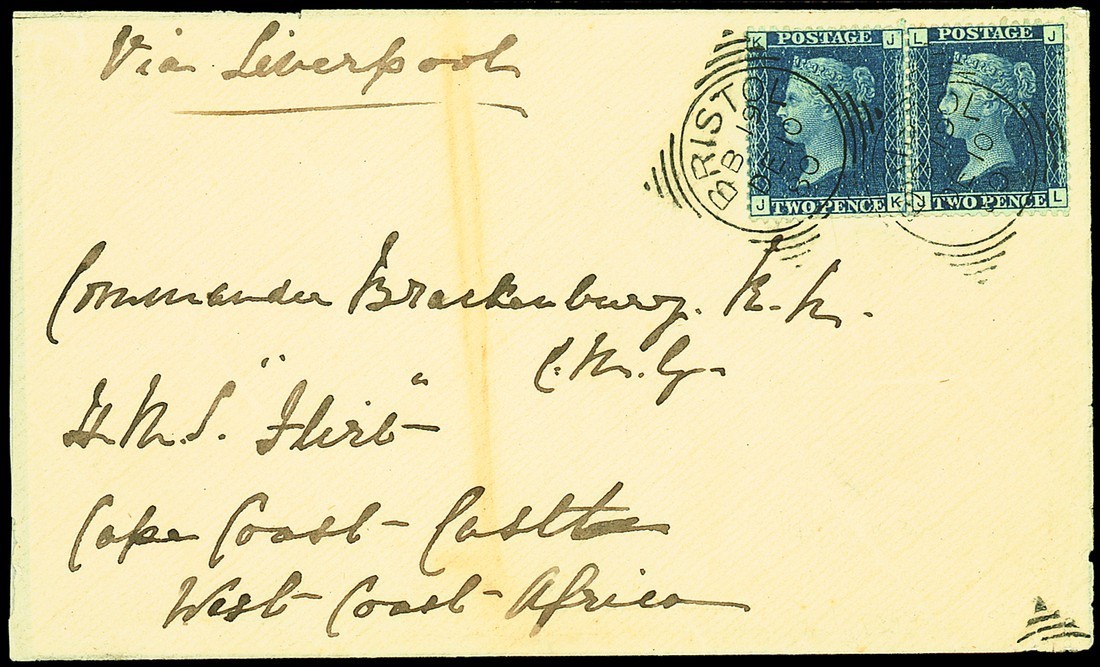 Via Liverpool
K POSTAGE J L POSTAGE J
J TWO PENCE K J TWO PENCE L
BRISTOL
DE 10
80
Commander Brackenbury. R.N.
C.M.G.
H.M.S. "Flirt"
Cape Coast Castle
West Coast Africa